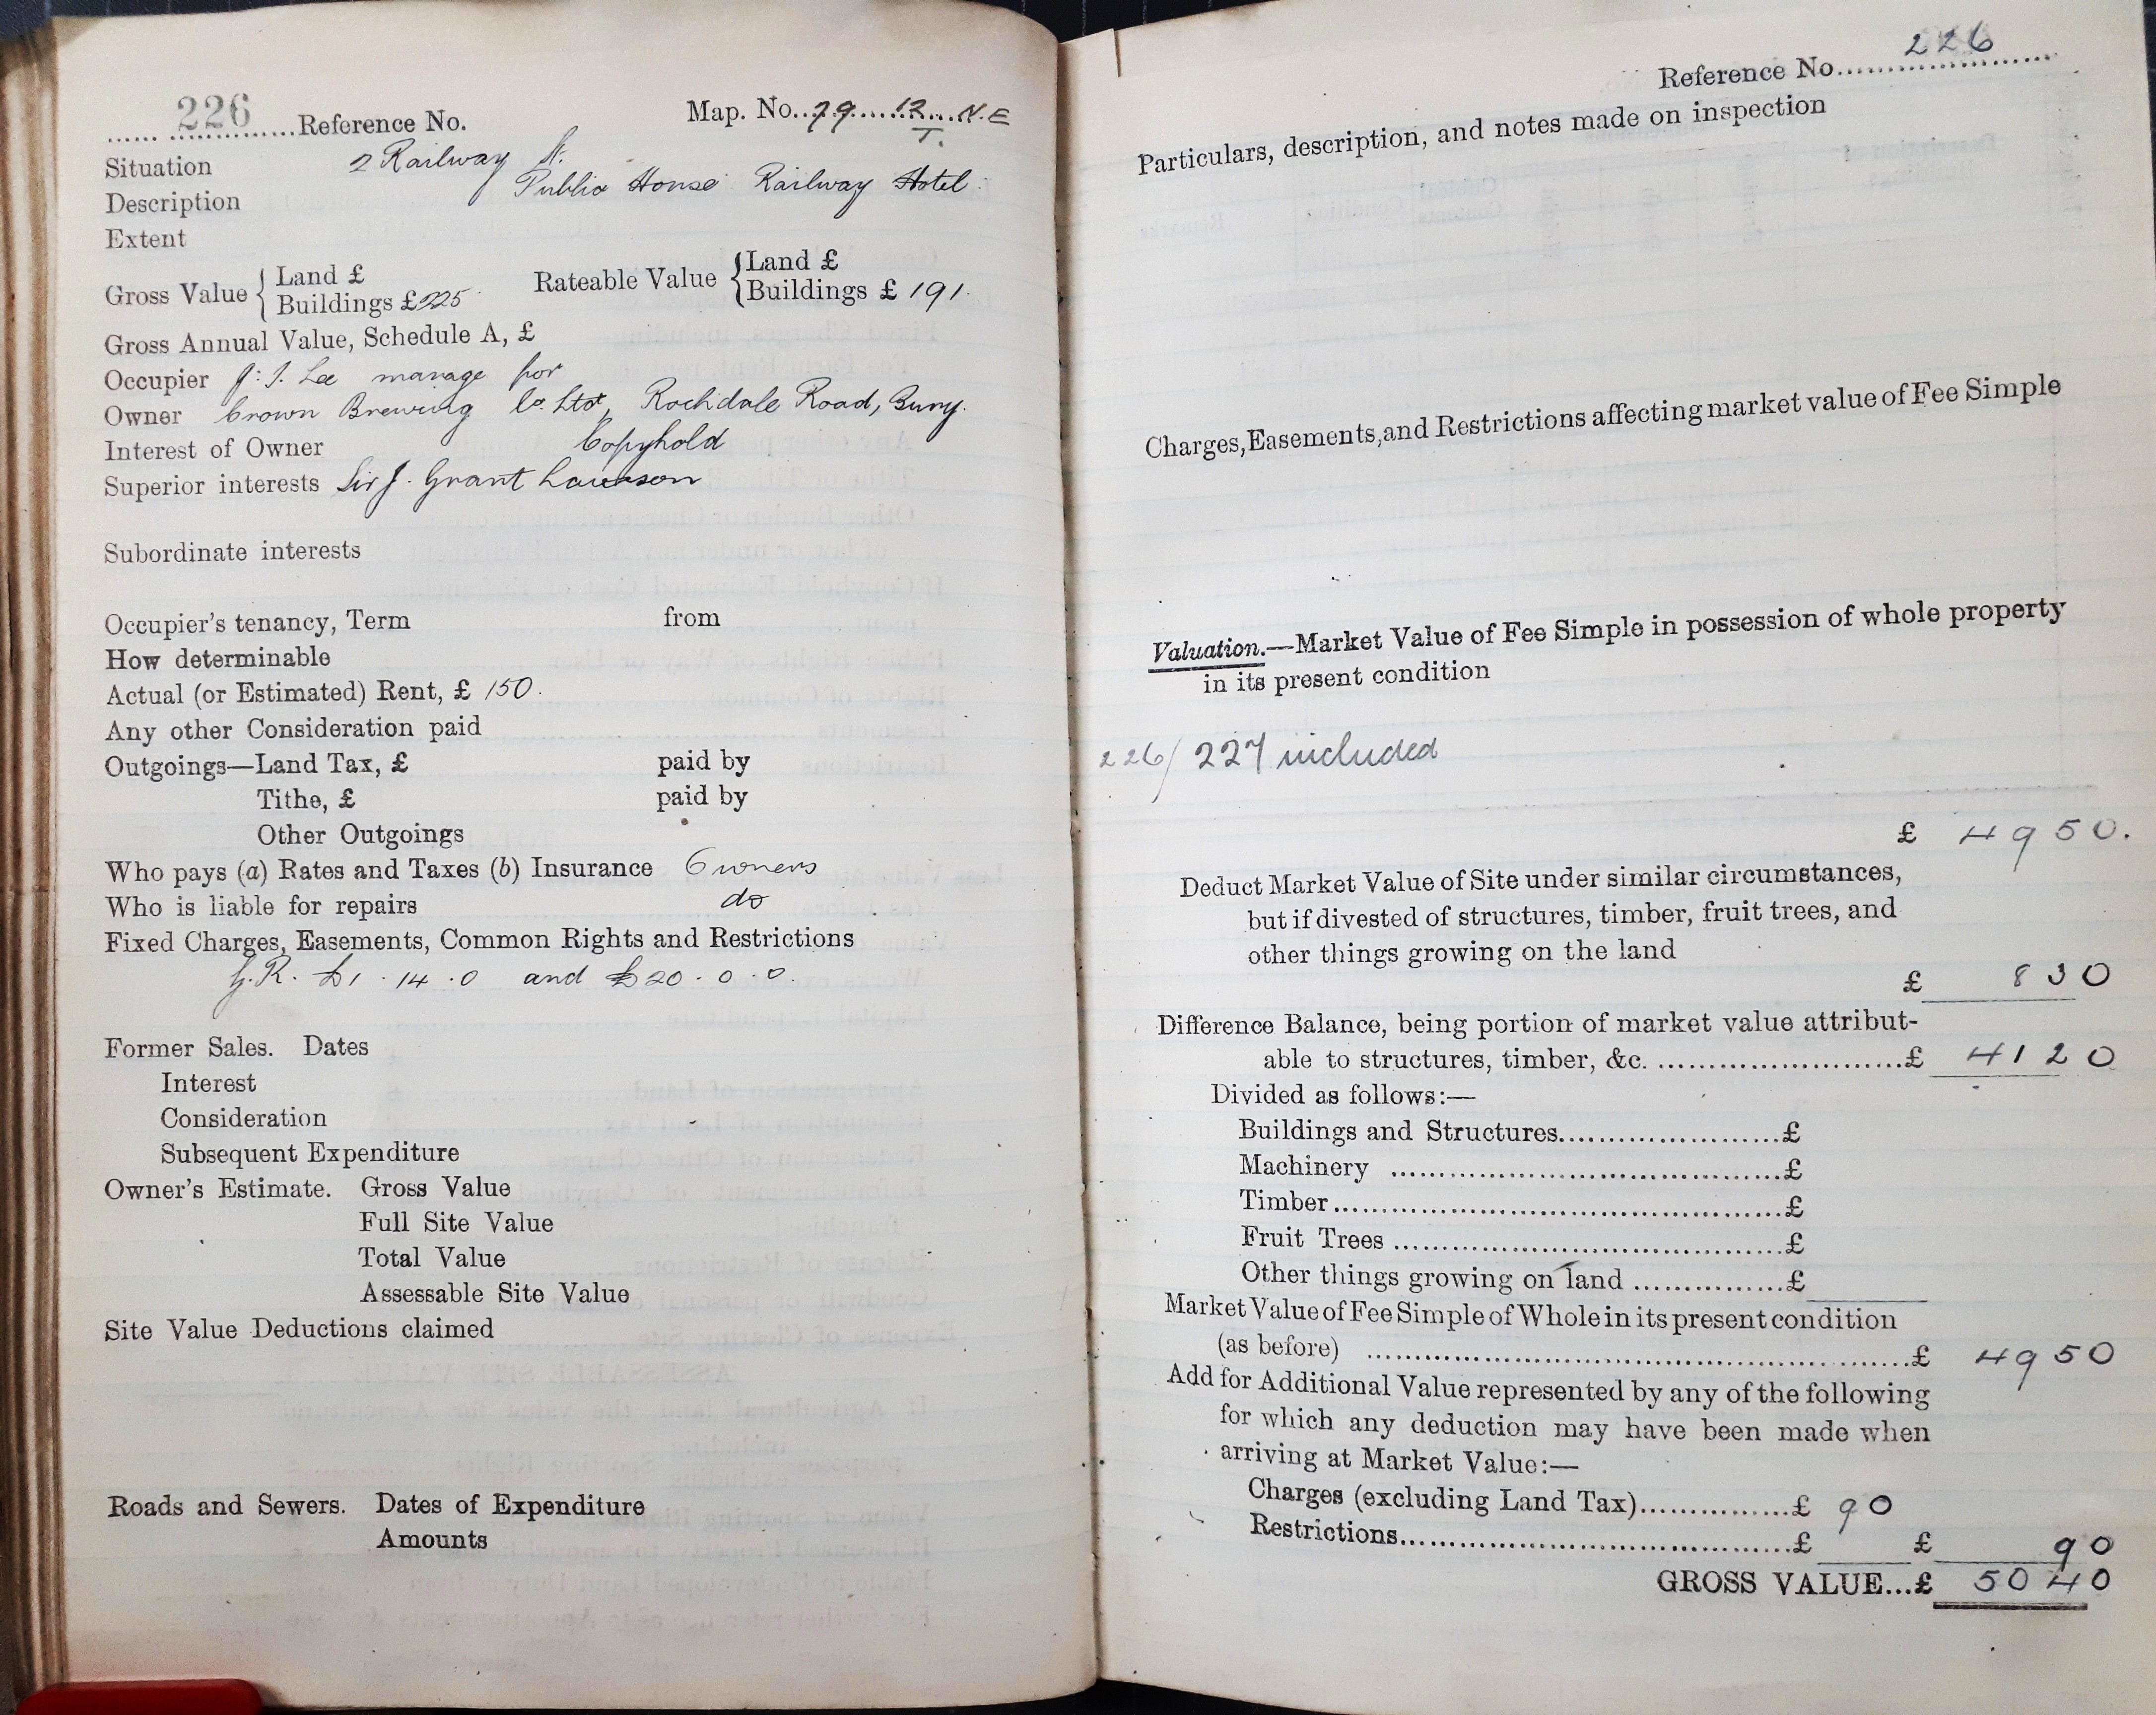 226 Reference No. Map. No. 79 12 N.E
T.
Situation 2 Railway St.
Description Public House Railway Hotel
Extent
Gross Value { Land £ Rateable Value { Land £
Buildings £225 Buildings £ 191.
Gross Annual Value, Schedule A, £
Occupier J. J. Lee manage for
Owner Crown Brewing Co. Ltd, Rochdale Road, Bury.
Interest of Owner Copyhold
Superior interests Sir J. Grant Lawson
Subordinate interests
Occupier's tenancy, Term from
How determinable
Actual (or Estimated) Rent, £ 150.
Any other Consideration paid
Outgoings—Land Tax, £ paid by
Tithe, £ paid by
Other Outgoings
Who pays (a) Rates and Taxes (b) Insurance Owners
Who is liable for repairs do
Fixed Charges, Easements, Common Rights and Restrictions
G.R. £1.14.0 and £20.0.0.
Former Sales. Dates
Interest
Consideration
Subsequent Expenditure
Owner's Estimate. Gross Value
Full Site Value
Total Value
Assessable Site Value
Site Value Deductions claimed
Roads and Sewers. Dates of Expenditure
Amounts
Reference No. 226
Particulars, description, and notes made on inspection
Charges, Easements, and Restrictions affecting market value of Fee Simple
Valuation.—Market Value of Fee Simple in possession of whole property
in its present condition
226/227 included
£ 4950.
Deduct Market Value of Site under similar circumstances,
but if divested of structures, timber, fruit trees, and
other things growing on the land
£ 830
Difference Balance, being portion of market value attribut-
able to structures, timber, &c. £ 4120
Divided as follows:—
Buildings and Structures £
Machinery £
Timber £
Fruit Trees £
Other things growing on land £
Market Value of Fee Simple of Whole in its present condition
(as before) £ 4950
Add for Additional Value represented by any of the following
for which any deduction may have been made when
arriving at Market Value:—
Charges (excluding Land Tax) £ 90
Restrictions £ £ 90
GROSS VALUE...£ 5040